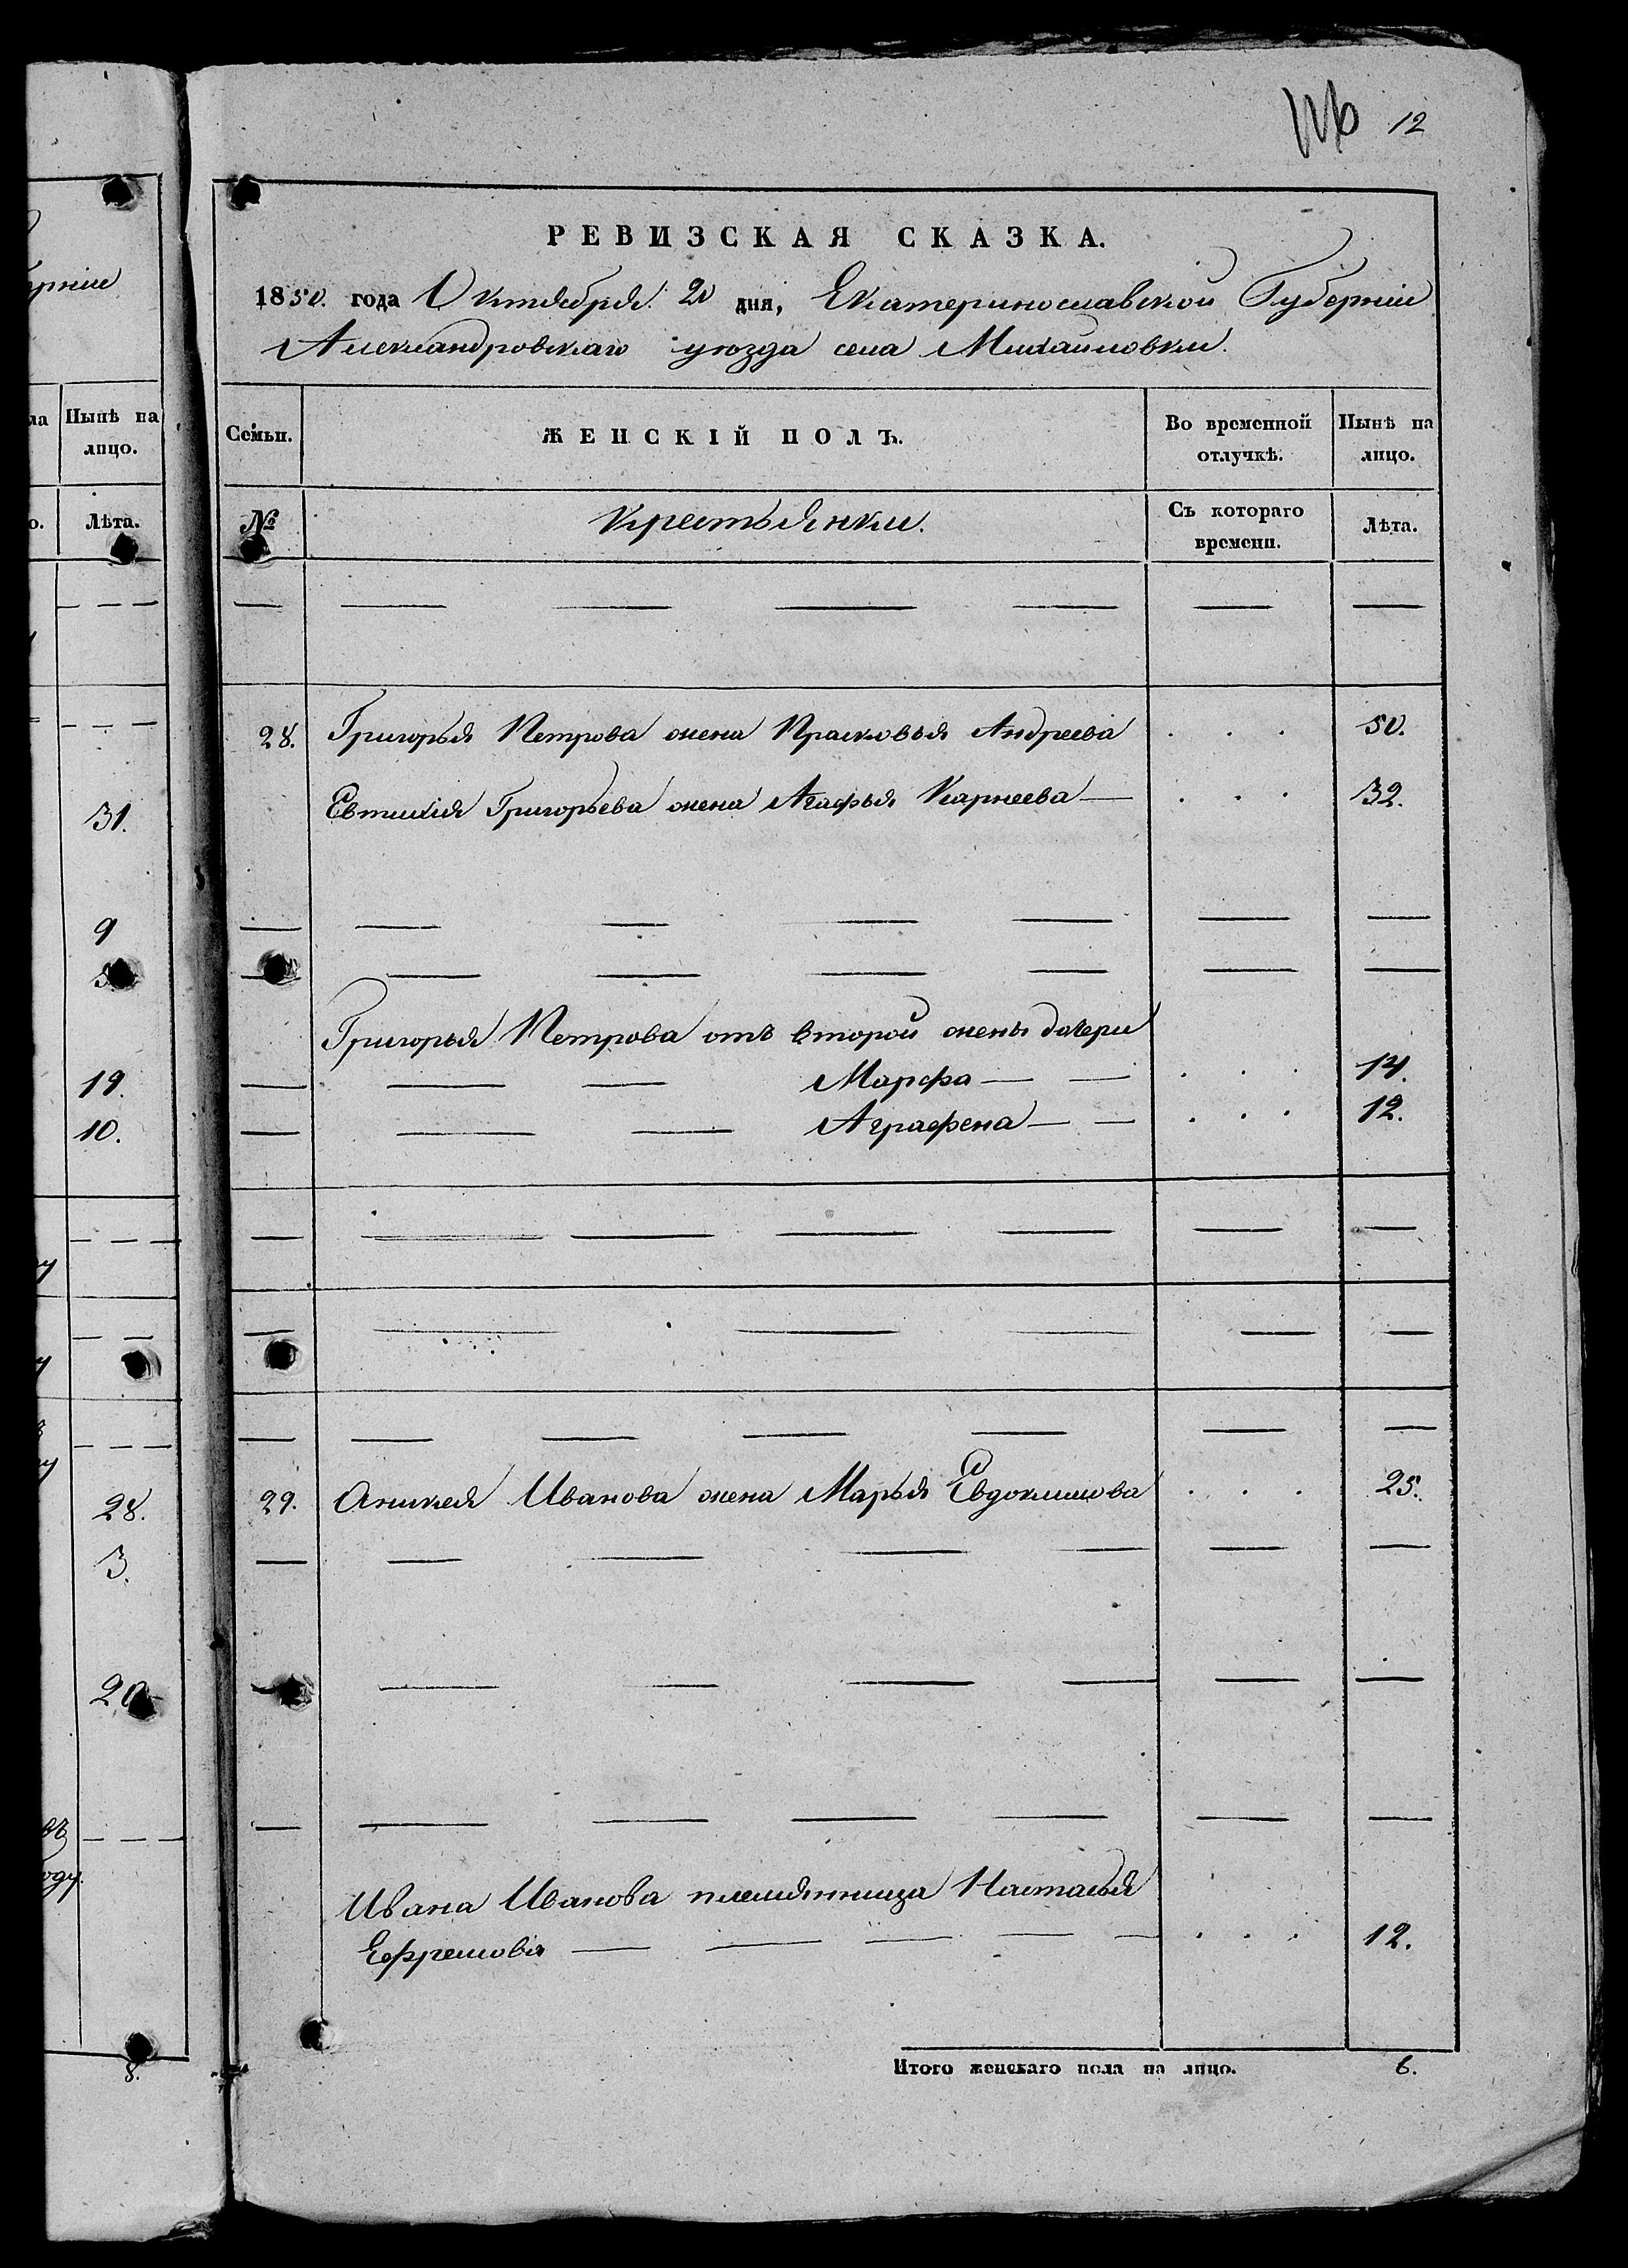 12
РЕВИЗСКАЯ СКАЗКА.
1850. года Октября. 20 дня, Екатеринославской Губерніи
Александровскаго уѣзда села Михайловки.
Нынѣ на лицо.
Лѣта.
Семьи.
ЖЕНСКІЙ ПОЛЪ.
Во временной отлучкѣ.
Нынѣ на лицо.
№
Крестьянки.
Съ котораго времени.
Лѣта.
28. Григорья Петрова жена Прасковья Андреева . . . 50.
Евтихія Григорьева жена Агафья Карнеева — . . . 32.
31.
9
Григорья Петрова отъ второй жены дочери
19. Марфа — — . . . 14.
10. Аграфена — — . . . 12.
29. Аникея Иванова жена Марья Евдокимова . . . 25.
28.
3.
20
Ивана Иванова племянница Настасья
Ефремова — — — — . . . 12.
Итого женскаго пола на лицо. 6.
8.